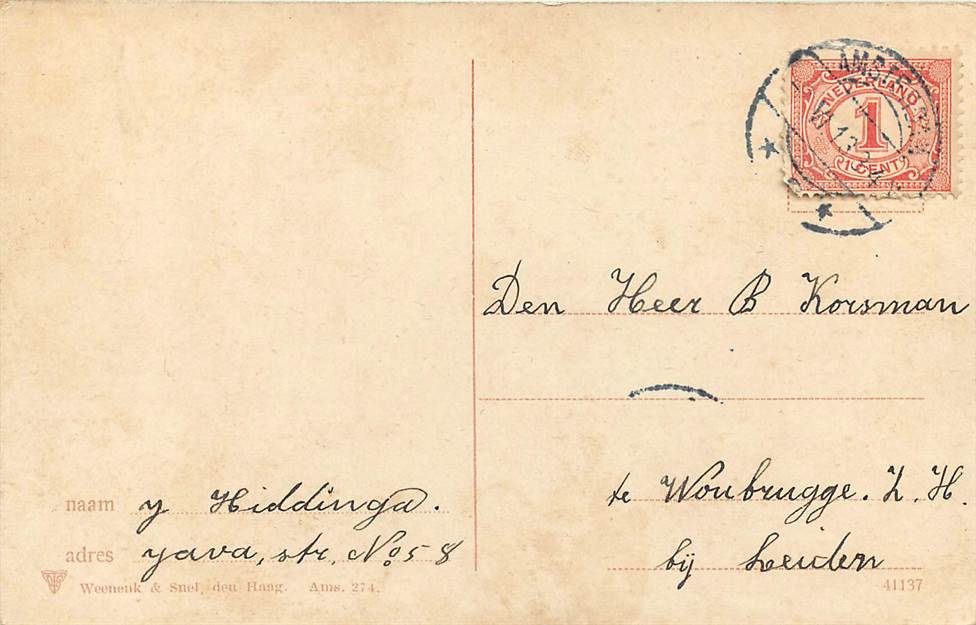 AMSTERDAM
NEDERLAND
1
1 CENT
Den Heer B Korsman
te Woubrugge. Z. H.
bij Leiden
naam y Hiddinga.
adres yava, str, No 58
Weenenk & Snel, den Haag. Ams. 274.
41137